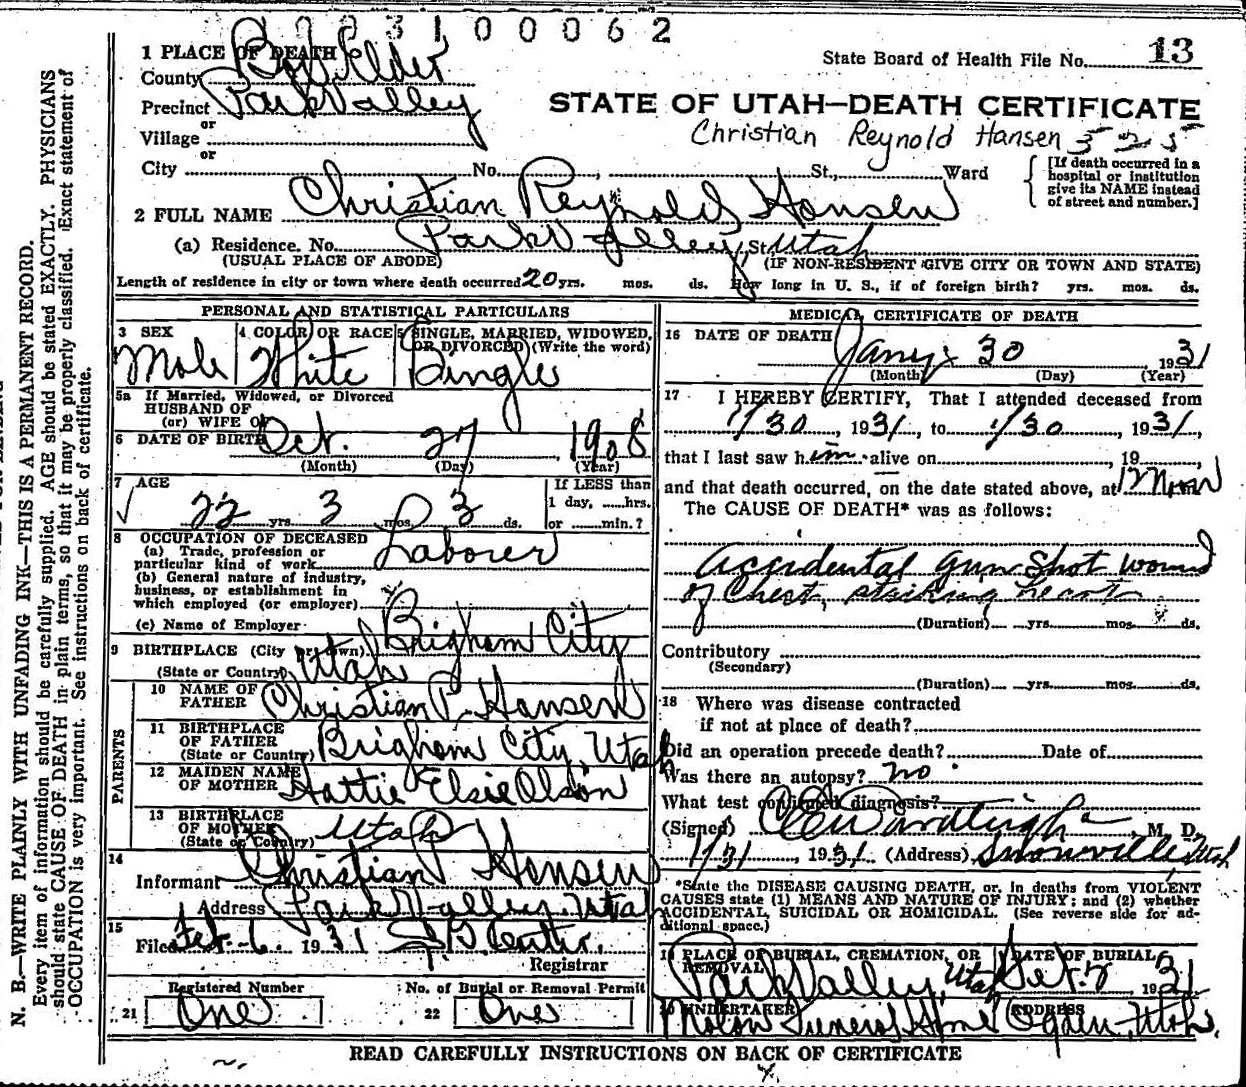 0 0 3 1 0 0 0 6 2
1 PLACE OF DEATH
State Board of Health File No. 13
County Box Elder
Precinct Park Valley
or
STATE OF UTAH—DEATH CERTIFICATE
Village
Christian Reynold Hansen 525
or
City No. St., Ward
[If death occurred in a
hospital or institution
give its NAME instead
of street and number.]
2 FULL NAME Christian Reynold Hansen
(a) Residence. No. Park Valley, St. Utah
(USUAL PLACE OF ABODE) (IF NON-RESIDENT GIVE CITY OR TOWN AND STATE)
Length of residence in city or town where death occurred 20 yrs. mos. ds. How long in U. S., if of foreign birth? yrs. mos. ds.
PERSONAL AND STATISTICAL PARTICULARS
3 SEX 4 COLOR OR RACE 5 SINGLE, MARRIED, WIDOWED,
OR DIVORCED (Write the word)
Male White Single
5a If Married, Widowed, or Divorced
HUSBAND OF
(or) WIFE OF
6 DATE OF BIRTH Oct. 27, 1908
(Month) (Day) (Year)
7 AGE If LESS than
1 day, ......hrs.
22 yrs. 3 mos. 3 ds. or ......min.?
8 OCCUPATION OF DECEASED
(a) Trade, profession or
particular kind of work Laborer
(b) General nature of industry,
business, or establishment in
which employed (or employer)
(c) Name of Employer
9 BIRTHPLACE (City or town) Brigham City
(State or Country) Utah
PARENTS
10 NAME OF
FATHER Christian P. Hansen
11 BIRTHPLACE
OF FATHER
(State or Country) Brigham City, Utah
12 MAIDEN NAME
OF MOTHER Hattie Elsie Olson
13 BIRTHPLACE
OF MOTHER Utah
(State or Country)
14
Informant Christian P Hansen
Address Park Valley, Utah
15
Filed Feb. 6, 1931
Registrar
Registered Number No. of Burial or Removal Permit
21 One 22 One
MEDICAL CERTIFICATE OF DEATH
16 DATE OF DEATH Jany. 30 1931
(Month) (Day) (Year)
17 I HEREBY CERTIFY, That I attended deceased from
1/30, 1931, to 1/30, 1931,
that I last saw him alive on , 19
and that death occurred, on the date stated above, at 12 Noon m
The CAUSE OF DEATH* was as follows:
Accidental Gun Shot wound
of Chest, striking heart
(Duration) yrs. mos. ds.
Contributory
(Secondary)
(Duration) yrs. mos. ds.
18 Where was disease contracted
if not at place of death?
Did an operation precede death? Date of
Was there an autopsy? no
What test confirmed diagnosis?
(Signed) , M. D.
1/31, 1931 (Address) Snowville Utah
*State the DISEASE CAUSING DEATH, or, in deaths from VIOLENT
CAUSES state (1) MEANS AND NATURE OF INJURY; and (2) whether
ACCIDENTAL, SUICIDAL OR HOMICIDAL. (See reverse side for ad-
ditional space.)
19 PLACE OF BURIAL, CREMATION, OR DATE OF BURIAL
REMOVAL
Park Valley, Utah 1931
20 UNDERTAKER ADDRESS
Funeral Home Ogden, Utah.
READ CAREFULLY INSTRUCTIONS ON BACK OF CERTIFICATE
N. B.—WRITE PLAINLY WITH UNFADING INK—THIS IS A PERMANENT RECORD.
Every item of information should be carefully supplied. AGE should be stated EXACTLY. PHYSICIANS
should state CAUSE OF DEATH in plain terms, so that it may be properly classified. Exact statement of
OCCUPATION is very important. See instructions on back of certificate.